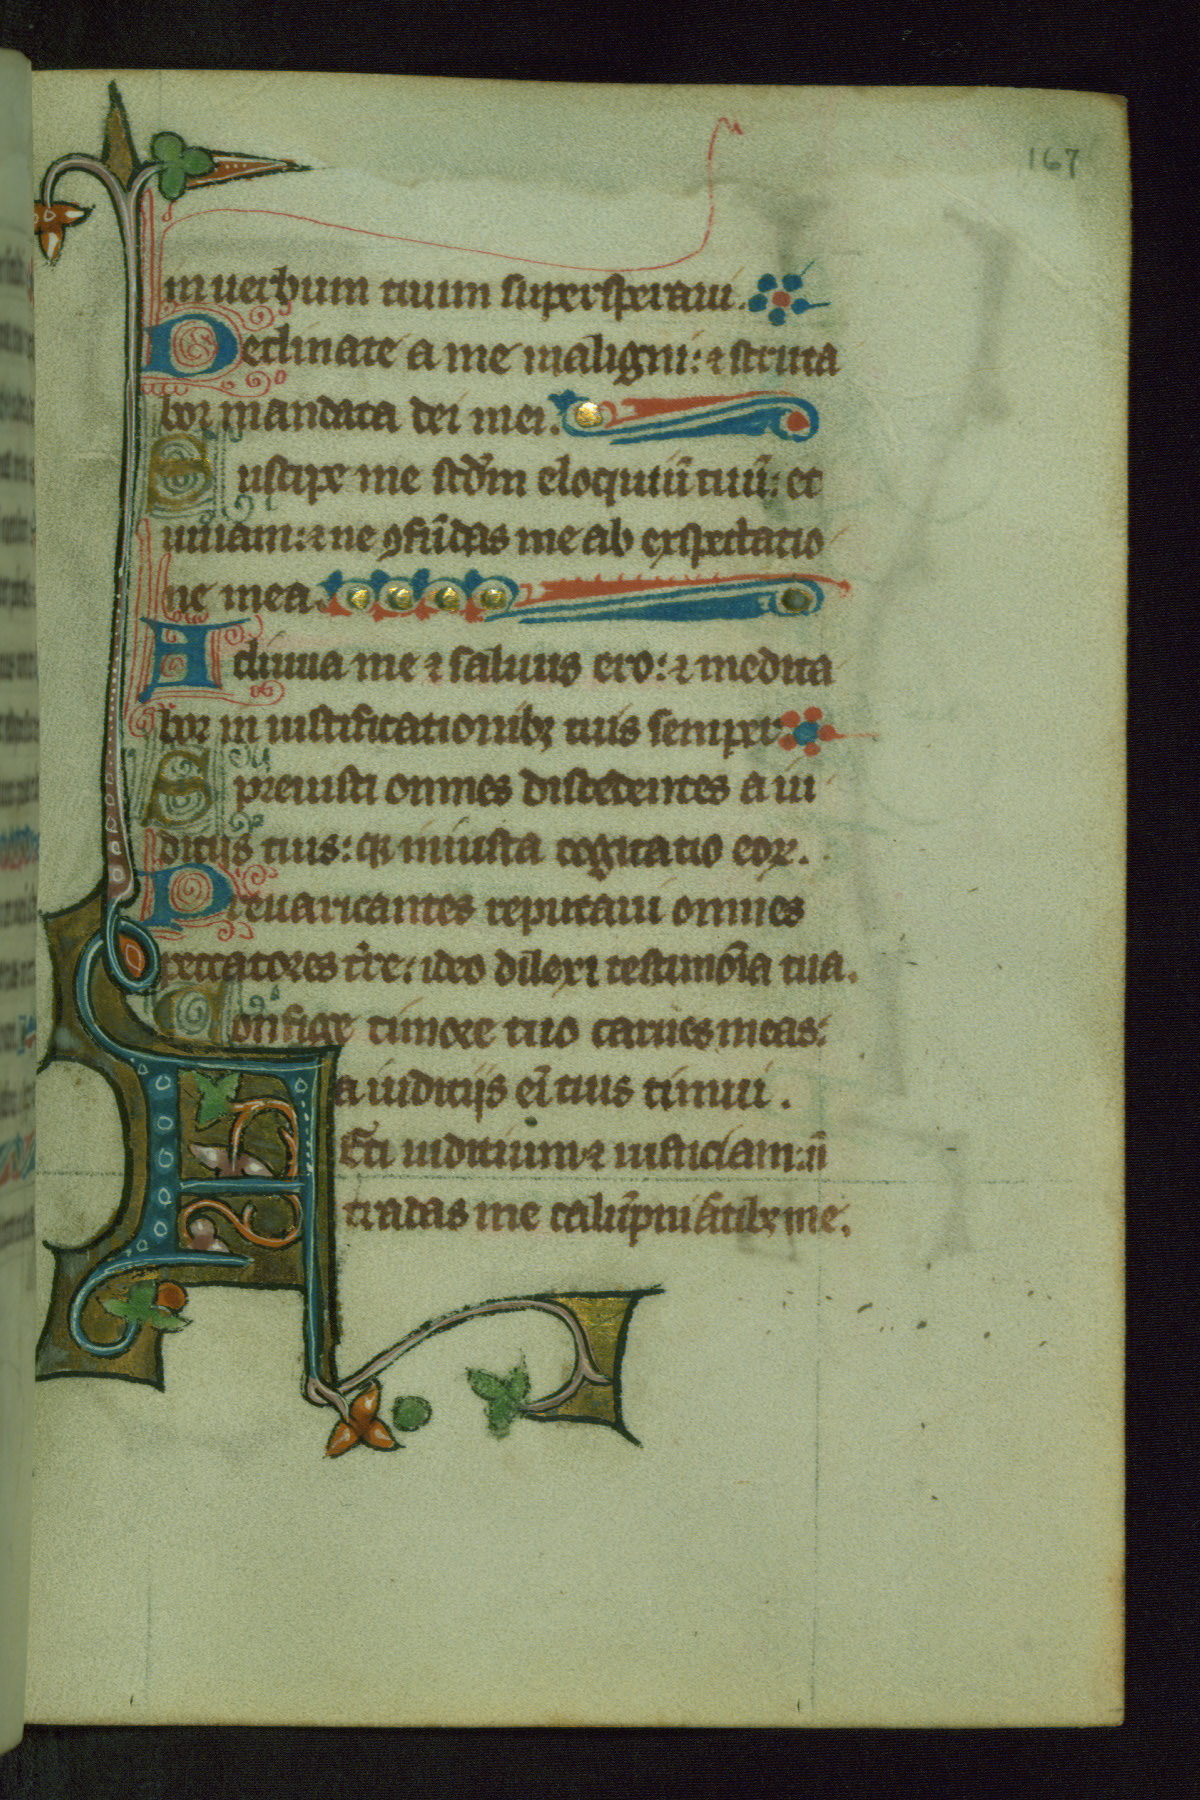 167
in uerbum tuum supersperaui.
Declinate a me maligni: ⁊ scruta
bor mandata dei mei.
Suscipe me scd̄m eloquiū tuū: et
uiuam: ⁊ ne ꝯfūdas me ab exspectatio
ne mea.
Adiuua me ⁊ saluus ero: ⁊ medita
bor in iustificationibꝫ tuis semper
Spreuisti omnes discedentes a iu
dicijs tuis: qr iniusta cogitatio eoꝝ.
Preuaricantes reputaui omnes
peccatores t̄re: ideo dilexi testimōia tua.
Confige timore tuo carnes meas:
a iudicijs eī tuis timui.
FEci iudicium ⁊ iusticiam: ñ
tradas me calūpniātibꝫ me.